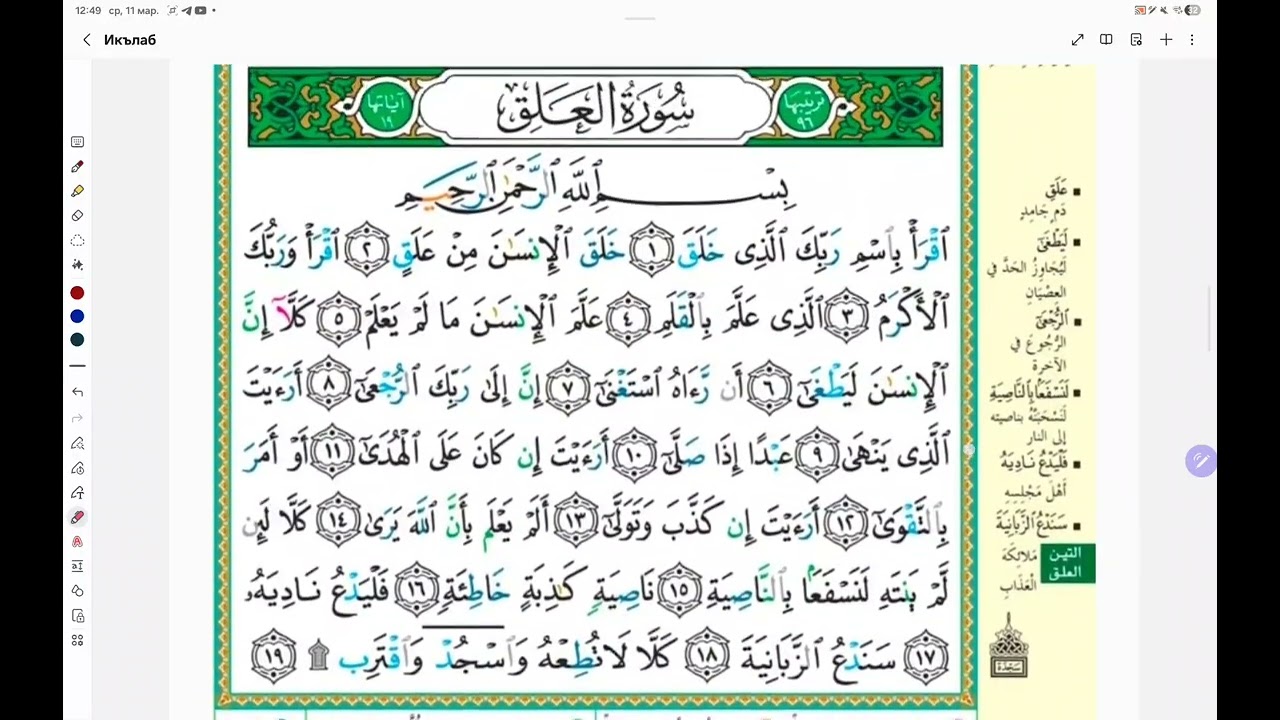 12:49 ср, 11 мар.
32
Икълаб
ترتيبها ٩٦
سُورَةُ العَلَقِ
آيَاتها ١٩
بِسْمِ ٱللَّهِ ٱلرَّحْمَٰنِ ٱلرَّحِيمِ
ٱقْرَأْ بِٱسْمِ رَبِّكَ ٱلَّذِى خَلَقَ ١ خَلَقَ ٱلْإِنسَٰنَ مِنْ عَلَقٍ ٢ ٱقْرَأْ وَرَبُّكَ
ٱلْأَكْرَمُ ٣ ٱلَّذِى عَلَّمَ بِٱلْقَلَمِ ٤ عَلَّمَ ٱلْإِنسَٰنَ مَا لَمْ يَعْلَمْ ٥ كَلَّآ إِنَّ
ٱلْإِنسَٰنَ لَيَطْغَىٰٓ ٦ أَن رَّءَاهُ ٱسْتَغْنَىٰٓ ٧ إِنَّ إِلَىٰ رَبِّكَ ٱلرُّجْعَىٰٓ ٨ أَرَءَيْتَ
ٱلَّذِى يَنْهَىٰ ٩ عَبْدًا إِذَا صَلَّىٰٓ ١٠ أَرَءَيْتَ إِن كَانَ عَلَى ٱلْهُدَىٰٓ ١١ أَوْ أَمَرَ
بِٱلتَّقْوَىٰٓ ١٢ أَرَءَيْتَ إِن كَذَّبَ وَتَوَلَّىٰٓ ١٣ أَلَمْ يَعْلَم بِأَنَّ ٱللَّهَ يَرَىٰ ١٤ كَلَّا لَئِن
لَّمْ يَنتَهِ لَنَسْفَعًۢا بِٱلنَّاصِيَةِ ١٥ نَاصِيَةٍ كَٰذِبَةٍ خَاطِئَةٍ ١٦ فَلْيَدْعُ نَادِيَهُۥ
١٧ سَنَدْعُ ٱلزَّبَانِيَةَ ١٨ كَلَّا لَا تُطِعْهُ وَٱسْجُدْ وَٱقْتَرِب ۩ ١٩
عَلَقٍ
دَمٍ جَامِدٍ
لَيَطْغَىٰٓ
لَيُجَاوِزُ الحَدَّ في
العِصْيَانِ
ٱلرُّجْعَىٰٓ
الرُّجُوعَ في
الآخرة
لَنَسْفَعًۢا بِٱلنَّاصِيَةِ
لَنَسْحَبَنَّهُ بناصيته
إلى النار
فَلْيَدْعُ نَادِيَهُ
أَهْلَ مَجْلِسِهِ
سَنَدْعُ ٱلزَّبَانِيَةَ
مَلَائِكَةَ
العَذَابِ
التين
العلق
سَجْدَة